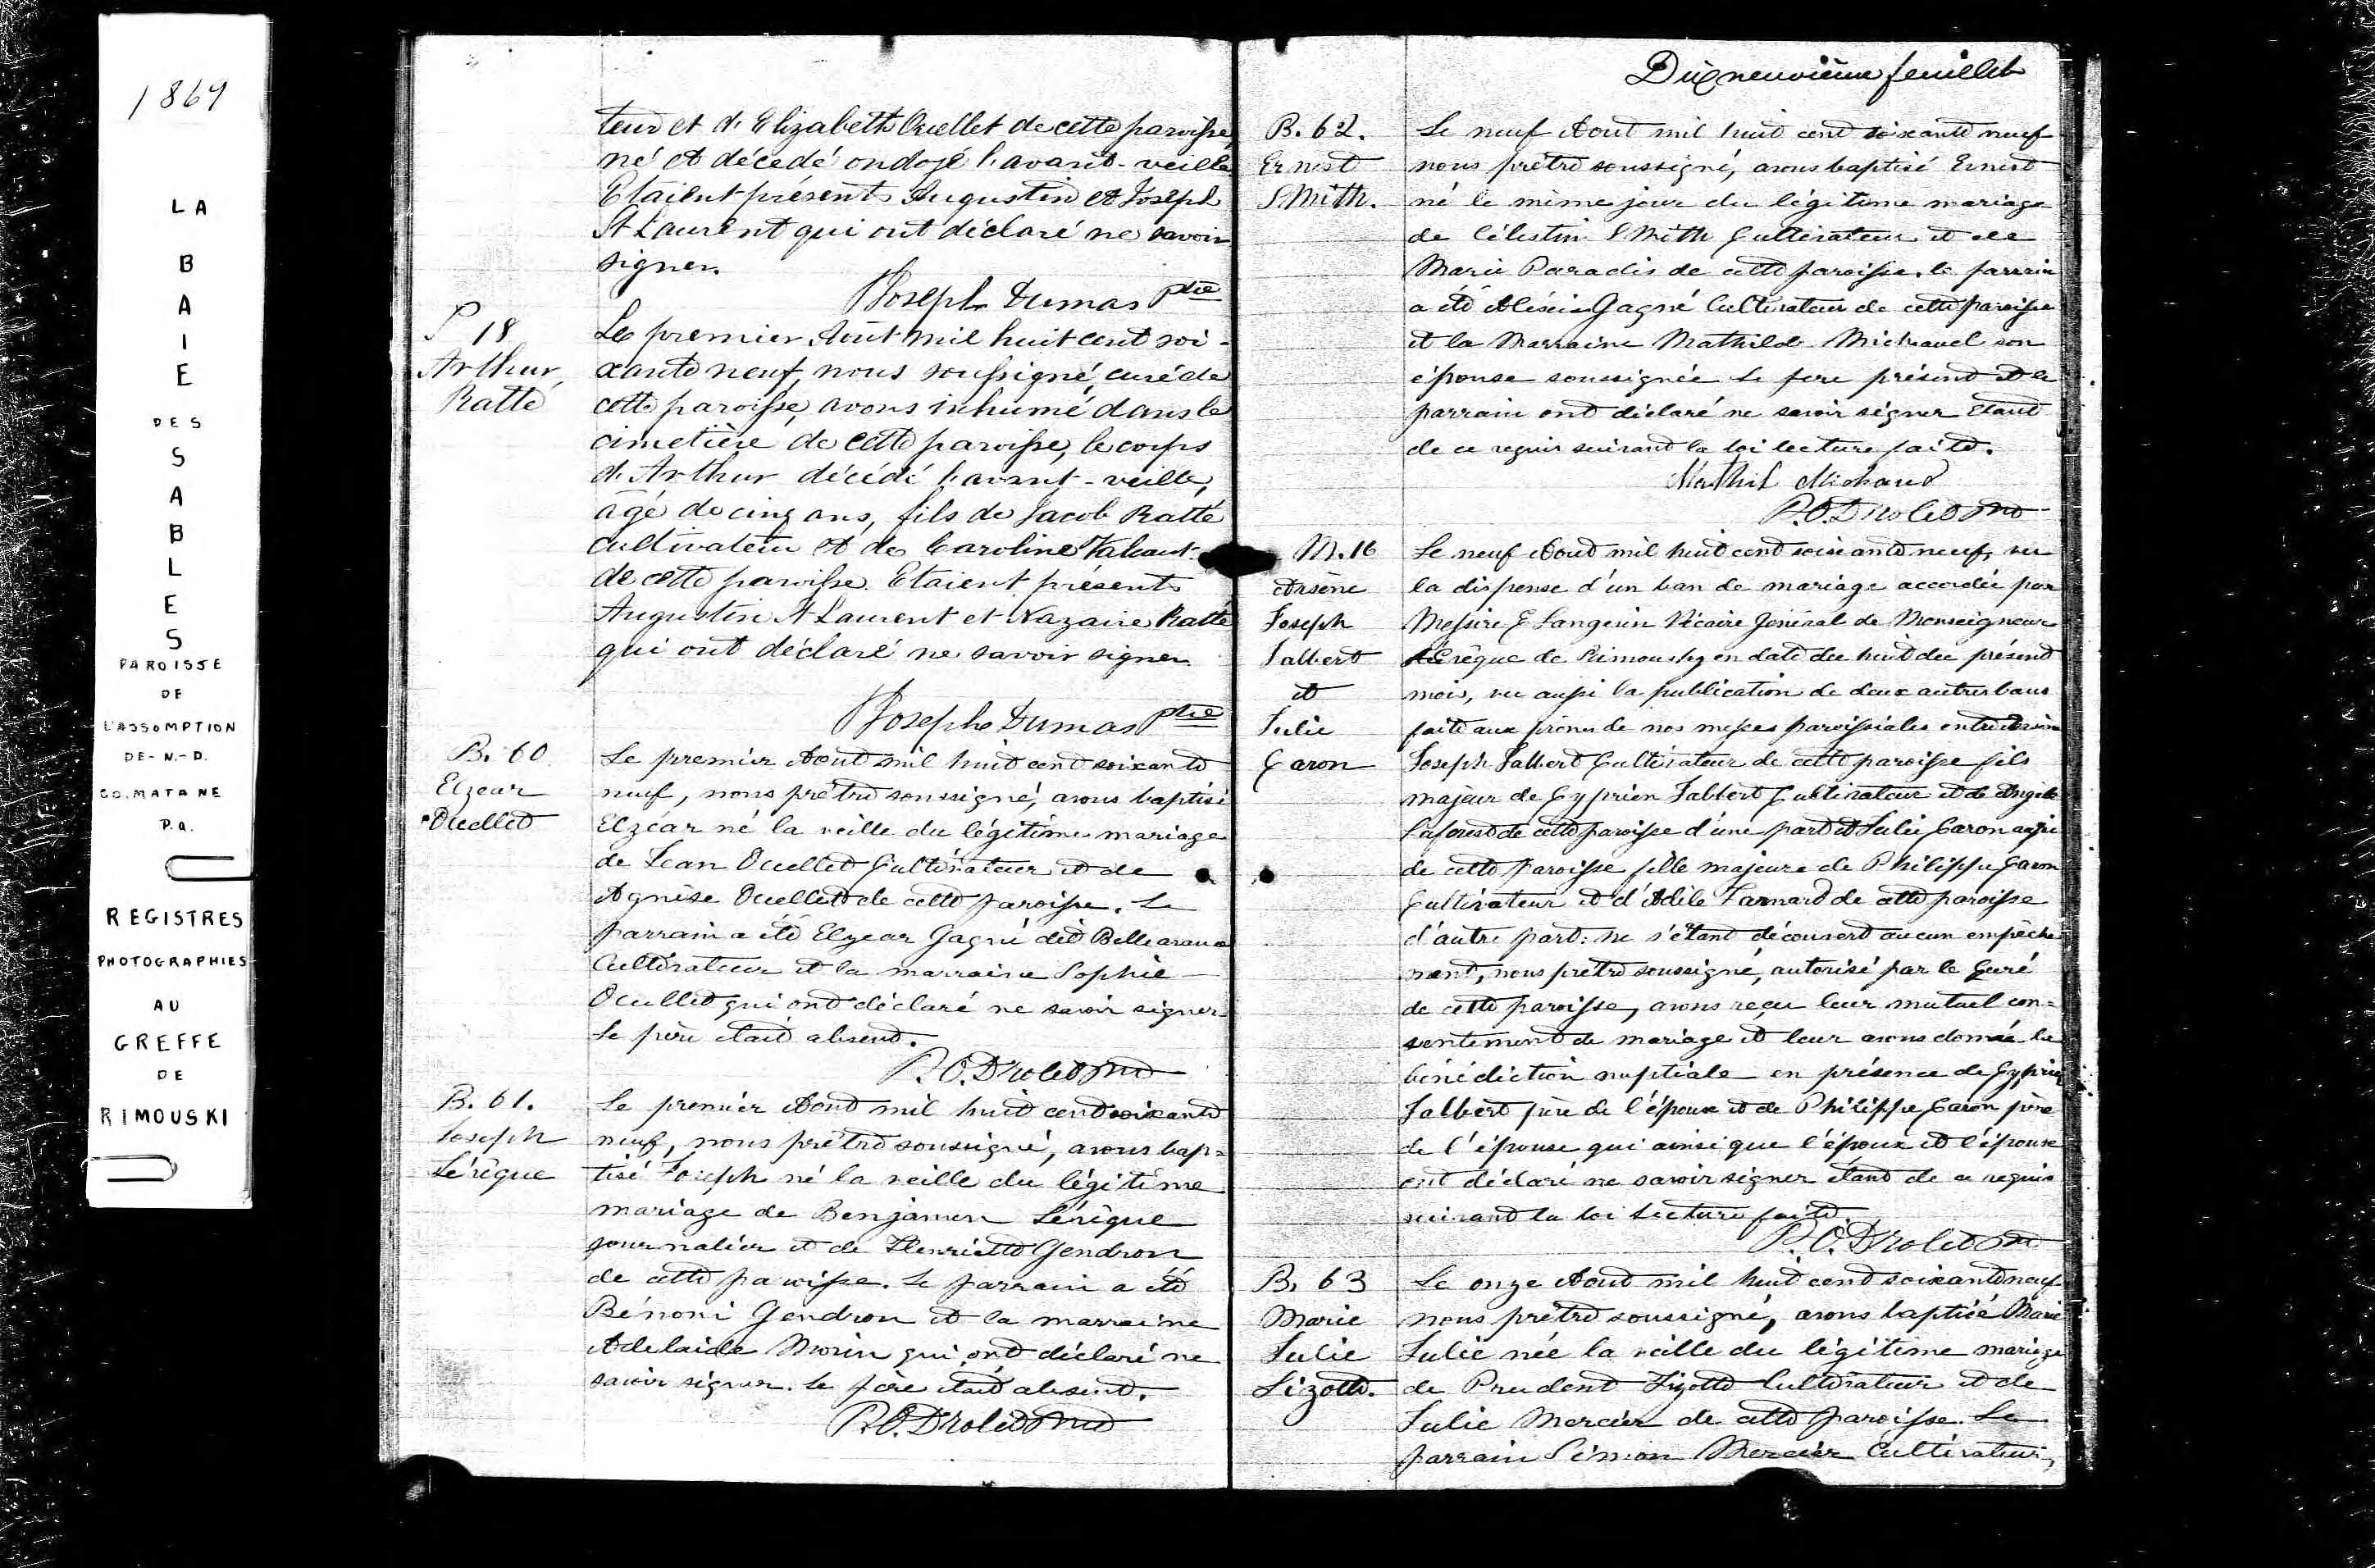 1869
LA
BAIE
DES
SABLES
PAROISSE
DE
L'ASSOMPTION
DE-N.-D.
CO. MATANE
P.Q.
REGISTRES
PHOTOGRAPHIES
AU
GREFFE
DE
RIMOUSKI
teur et d'Elizabeth Ouellet de cette paroisse,
né et décédé ondoyé l'avant-veille
Etaient présents Augustin et Joseph
St Laurent qui ont déclaré ne savoir
signer.
Joseph Dumas Ptre
S 18
Arthur
Ratté
Le premier Août mil huit cent soi-
xante neuf, nous soussigné, curé de
cette paroisse, avons inhumé dans le
cimetière de cette paroisse, le corps
d'Arthur décédé l'avant-veille,
âgé de cinq ans, fils de Jacob Ratté
cultivateur et de Caroline
de cette paroisse. Etaient présents
Augustin St Laurent et Nazaire Ratté
qui ont déclaré ne savoir signer.
Joseph Dumas Ptre
B. 60.
Elzear
Ouellet
Le premier Aout mil huit cent soixante
neuf, nous prêtre soussigné, avons baptisé
Elzéar né la veille du légitime mariage
de Jean Ouellet Cultivateur et de
Agnèse Ouellet de cette paroisse. Le
parrain a été Elzear Gagné dit Bellavance
Cultivateur et la marraine Sophie
Ouellet qui ont déclaré ne savoir signer.
Le père était absent.
P. O. Drolet Ptre
B. 61.
Joseph
Lévêque
Le premier Aout mil huit cent soixante
neuf, nous prêtre soussigné, avons bap=
tisé Joseph né la veille du légitime
mariage de Benjamen Lévêque
journalier et de Henriette Gendron
de cette paroisse. Le parrain a été
Bénoni Gendron et la marraine
Adelaide Morin qui ont déclaré ne
savoir signer. Le père était absent.
P. O. Drolet Ptre
Dix neuvième feuillet
B. 62.
Ernest
Smith.
Le neuf Aout mil huit cent soixante neuf
nous prêtre soussigné, avons baptisé Ernest
né le même jour du légitime mariage
de Célestin Smith Cultivateur et de
Marie Paradis de cette paroisse. le parrain
a été Alexis Gagné Cultivateur de cette paroisse
et la Marraine Mathilde Michaud son
épouse soussignée Le père présent et le
parrain ont déclaré ne savoir signer étant
de ce requis suivant la loi lecture faite.
Mathil Michaud
P. O. Drolet Ptre
M. 16
Arsène
Joseph
Jalbert
et
Julie
Caron
Le neuf Aout mil huit cent soixante neuf, vu
la dispense d'un ban de mariage accordée par
Messire E Langevin Vicaire Général de Monseigneur
l'Evêque de Rimousky en date du huit du présent
mois, vu aussi la publication de deux autres bans
faite aux prônes de nos messes paroissiales entre Arsène
Joseph Jalbert Cultivateur de cette paroisse fils
majeur de Cyprien Jalbert Cultivateur et de Angèle
Laforest de cette paroisse d'une part et Julie Caron aussi
de cette paroisse fille majeure de Philippe Caron
Cultivateur et d'Adèle de cette paroisse
d'autre part: ne s'étant découvert aucun empêche
ment, nous prêtre soussigné, autorisé par le Curé
de cette paroisse, avons reçu leur mutuel con=
sentement de mariage et leur avons donnée la
bénédiction nuptiale en présence de Cyprien
Jalbert père de l'époux et de Philippe Caron père
de l'épouse qui ainsi que l'époux et l'épouse
ont déclaré ne savoir signer étant de ce requis
suivant la loi lecture faite
P. O. Drolet Ptre
B. 63
Marie
Julie
Lizotte.
Le onze Aout mil huit cent soixante neuf
nous prêtre soussigné, avons baptisé Marie
Julie née la veille du légitime mariage
de Prudent Lizotte Cultivateur et de
Julie Mercier de cette paroisse. Le
parrain Simon Mercier Cultivateur,